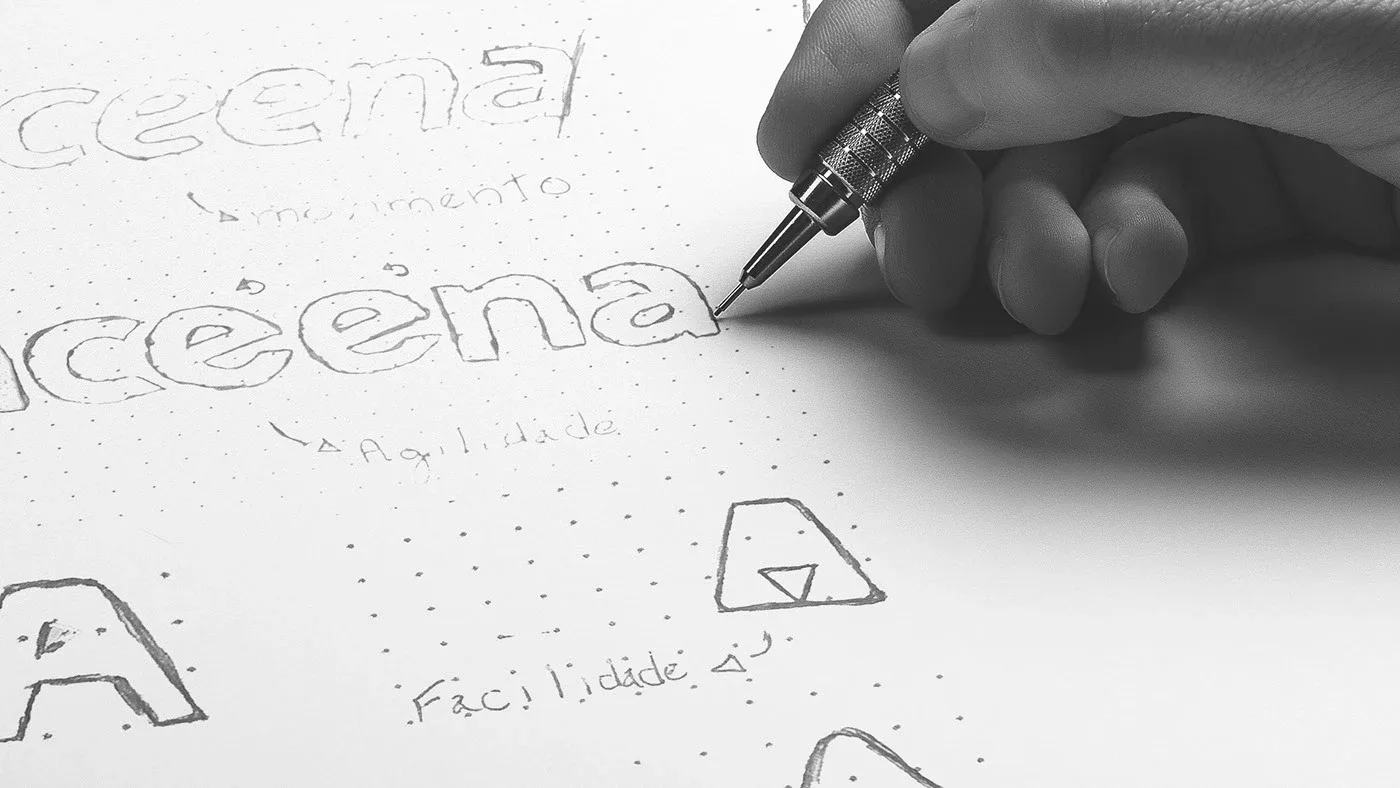 ceena
movimento
aceena
Agilidade
A
A
Facilidade